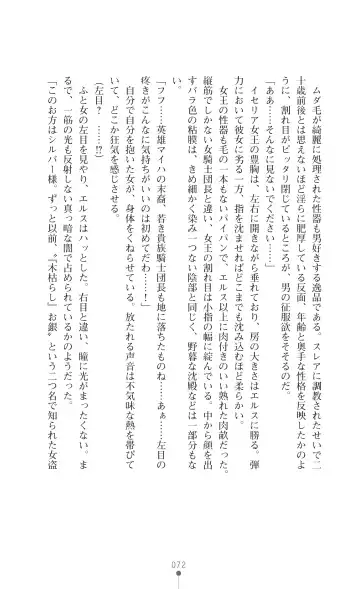 ムダ毛が綺麗に処理された性器も男好きする逸品である。スレアに調教されたせいで二
十歳前後とは思えないほど淫らに肥厚している反面、年齢と奥手な性格を反映したかのよ
うに、割れ目がピッタリ閉じているところが、男の征服欲をそそるのだ。
「ああ……そんなに見ないでください……」
　イセリア女王の豊胸は、左右に開きながら垂れており、房の大きさはエルスに勝る。弾
力において彼女に劣る一方、指を沈ませればどこまでも沈み込むほど柔らかい。
　女王の性器も毛の一本もないパイパンで、エルス以上に肉付きのいい熟れた肉畝だった。
縦筋でしかない女騎士団長と違い、女王の割れ目は小指の幅に綻んでいる。中から顔を出
すバラ色の粘膜は、きめ細かく染み一つない陰部と同じく、野暮な沈殿などは一部分もな
い。
「フフ……英雄マイハの末裔、若き貴族騎士団長も地に落ちたものね……あぁ……左目の
疼きがこんなに気持ちがいいのは初めてだわ……！」
　自分で自分を抱いた女が、身体をくねらせている。放たれる声音は不気味な熱を帯びて
いて、どこか狂気を感じさせる。
（左目？……⁉）
　ふと女の左目を見やり、エルスはハッとした。右目と違い、瞳に光がまったくない。ま
るで、一筋の光も反射しない真っ暗な闇で占められているかのようだった。
「このお方はシルバー様。ずっと以前、〝木枯らし〟お銀〟という二つ名で知られた女盗
072